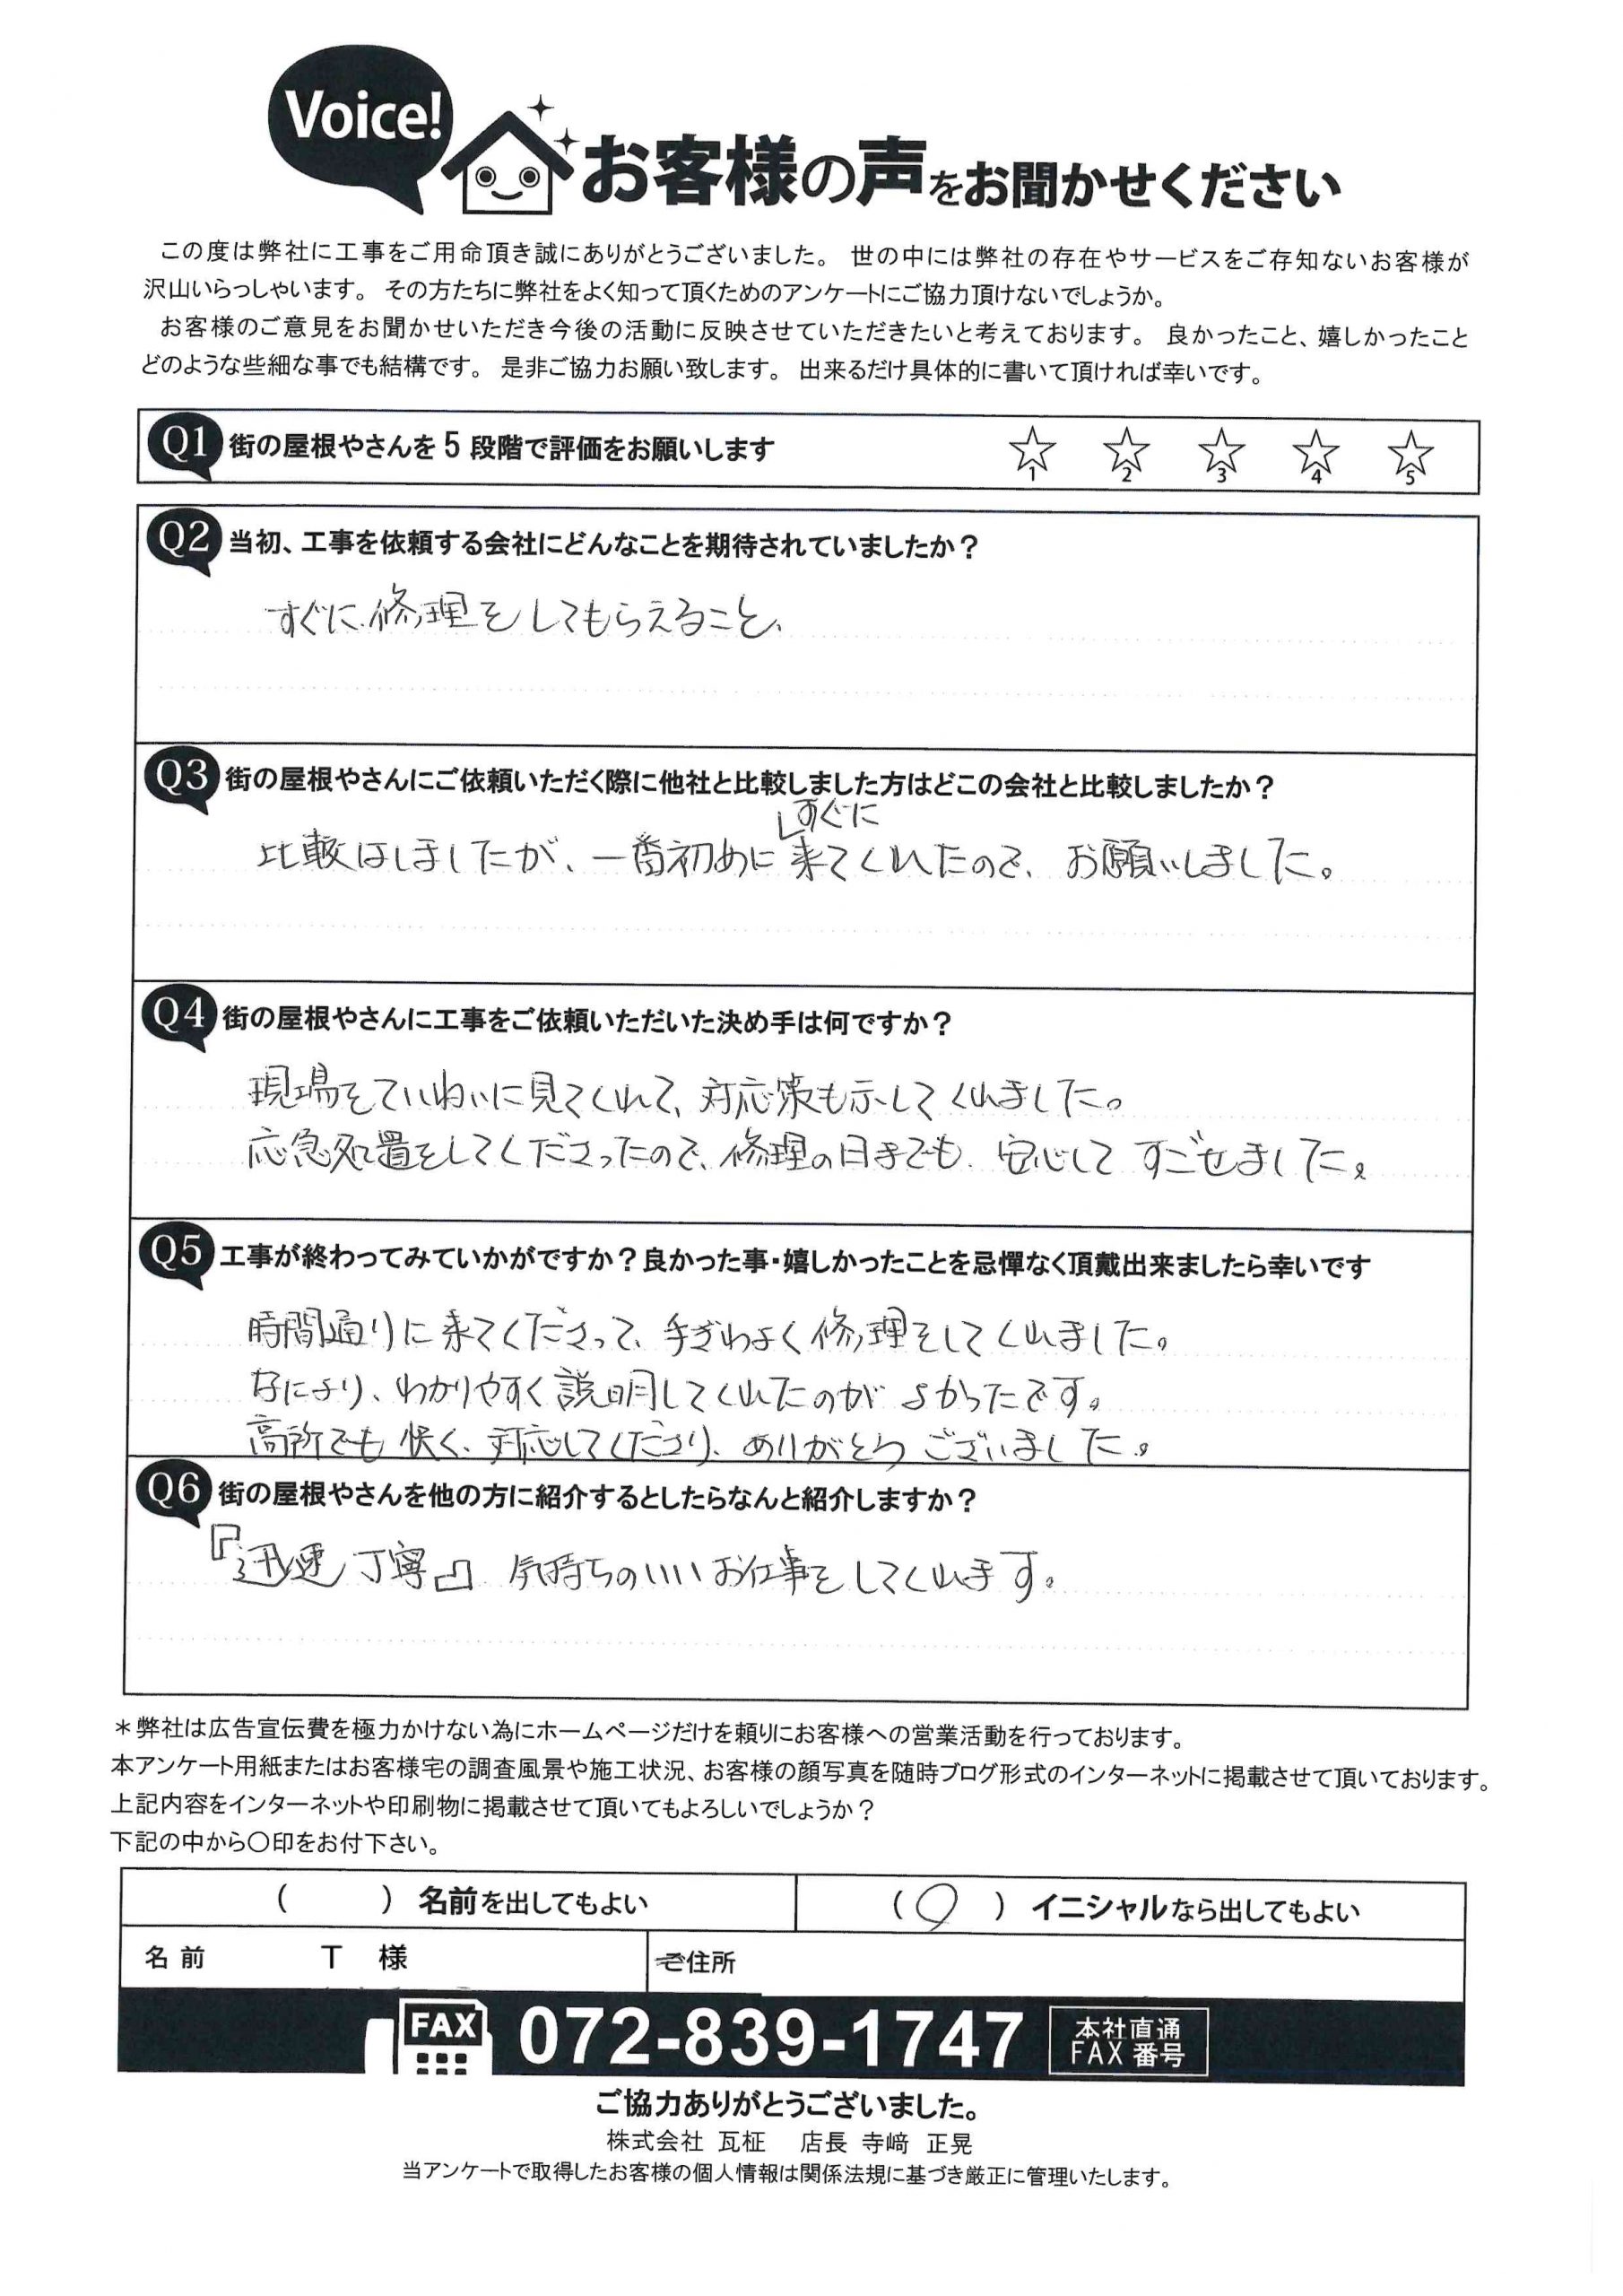 Voice!
お客様の声をお聞かせください
この度は弊社に工事をご用命頂き誠にありがとうございました。 世の中には弊社の存在やサービスをご存知ないお客様が
沢山いらっしゃいます。 その方たちに弊社をよく知って頂くためのアンケートにご協力頂けないでしょうか。
お客様のご意見をお聞かせいただき今後の活動に反映させていただきたいと考えております。 良かったこと、嬉しかったこと
どのような些細な事でも結構です。 是非ご協力お願い致します。 出来るだけ具体的に書いて頂ければ幸いです。
Q1 街の屋根やさんを5段階で評価をお願いします ☆1 ☆2 ☆3 ☆4 ☆5
Q2 当初、工事を依頼する会社にどんなことを期待されていましたか？
すぐに修理をしてもらえること、
Q3 街の屋根やさんにご依頼いただく際に他社と比較しました方はどこの会社と比較しましたか？
すぐに
比較はしましたが、一番初めに来てくれたので、お願いしました。
Q4 街の屋根やさんに工事をご依頼いただいた決め手は何ですか？
現場をていねいに見てくれて、対応策も示してくれました。
応急処置をしてくださったので、修理の日までも、安心してすごせました。
Q5 工事が終わってみていかがですか？良かった事・嬉しかったことを忌憚なく頂戴出来ましたら幸いです
時間通りに来てくださって、手ぎわよく修理をしてくれました。
なにより、わかりやすく説明してくれたのがよかったです。
高所でも快く、対応してくださり、ありがとうございました。
Q6 街の屋根やさんを他の方に紹介するとしたらなんと紹介しますか？
『迅速丁寧』気持ちのいいお仕事をしてくれます。
＊弊社は広告宣伝費を極力かけない為にホームページだけを頼りにお客様への営業活動を行っております。
本アンケート用紙またはお客様宅の調査風景や施工状況、お客様の顔写真を随時ブログ形式のインターネットに掲載させて頂いております。
上記内容をインターネットや印刷物に掲載させて頂いてもよろしいでしょうか？
下記の中から〇印をお付下さい。
（　　） 名前を出してもよい （○） イニシャルなら出してもよい
名前 T 様 ご住所
FAX 072-839-1747 本社直通
FAX 番号
ご協力ありがとうございました。
株式会社 瓦柾 店長 寺﨑 正晃
当アンケートで取得したお客様の個人情報は関係法規に基づき厳正に管理いたします。